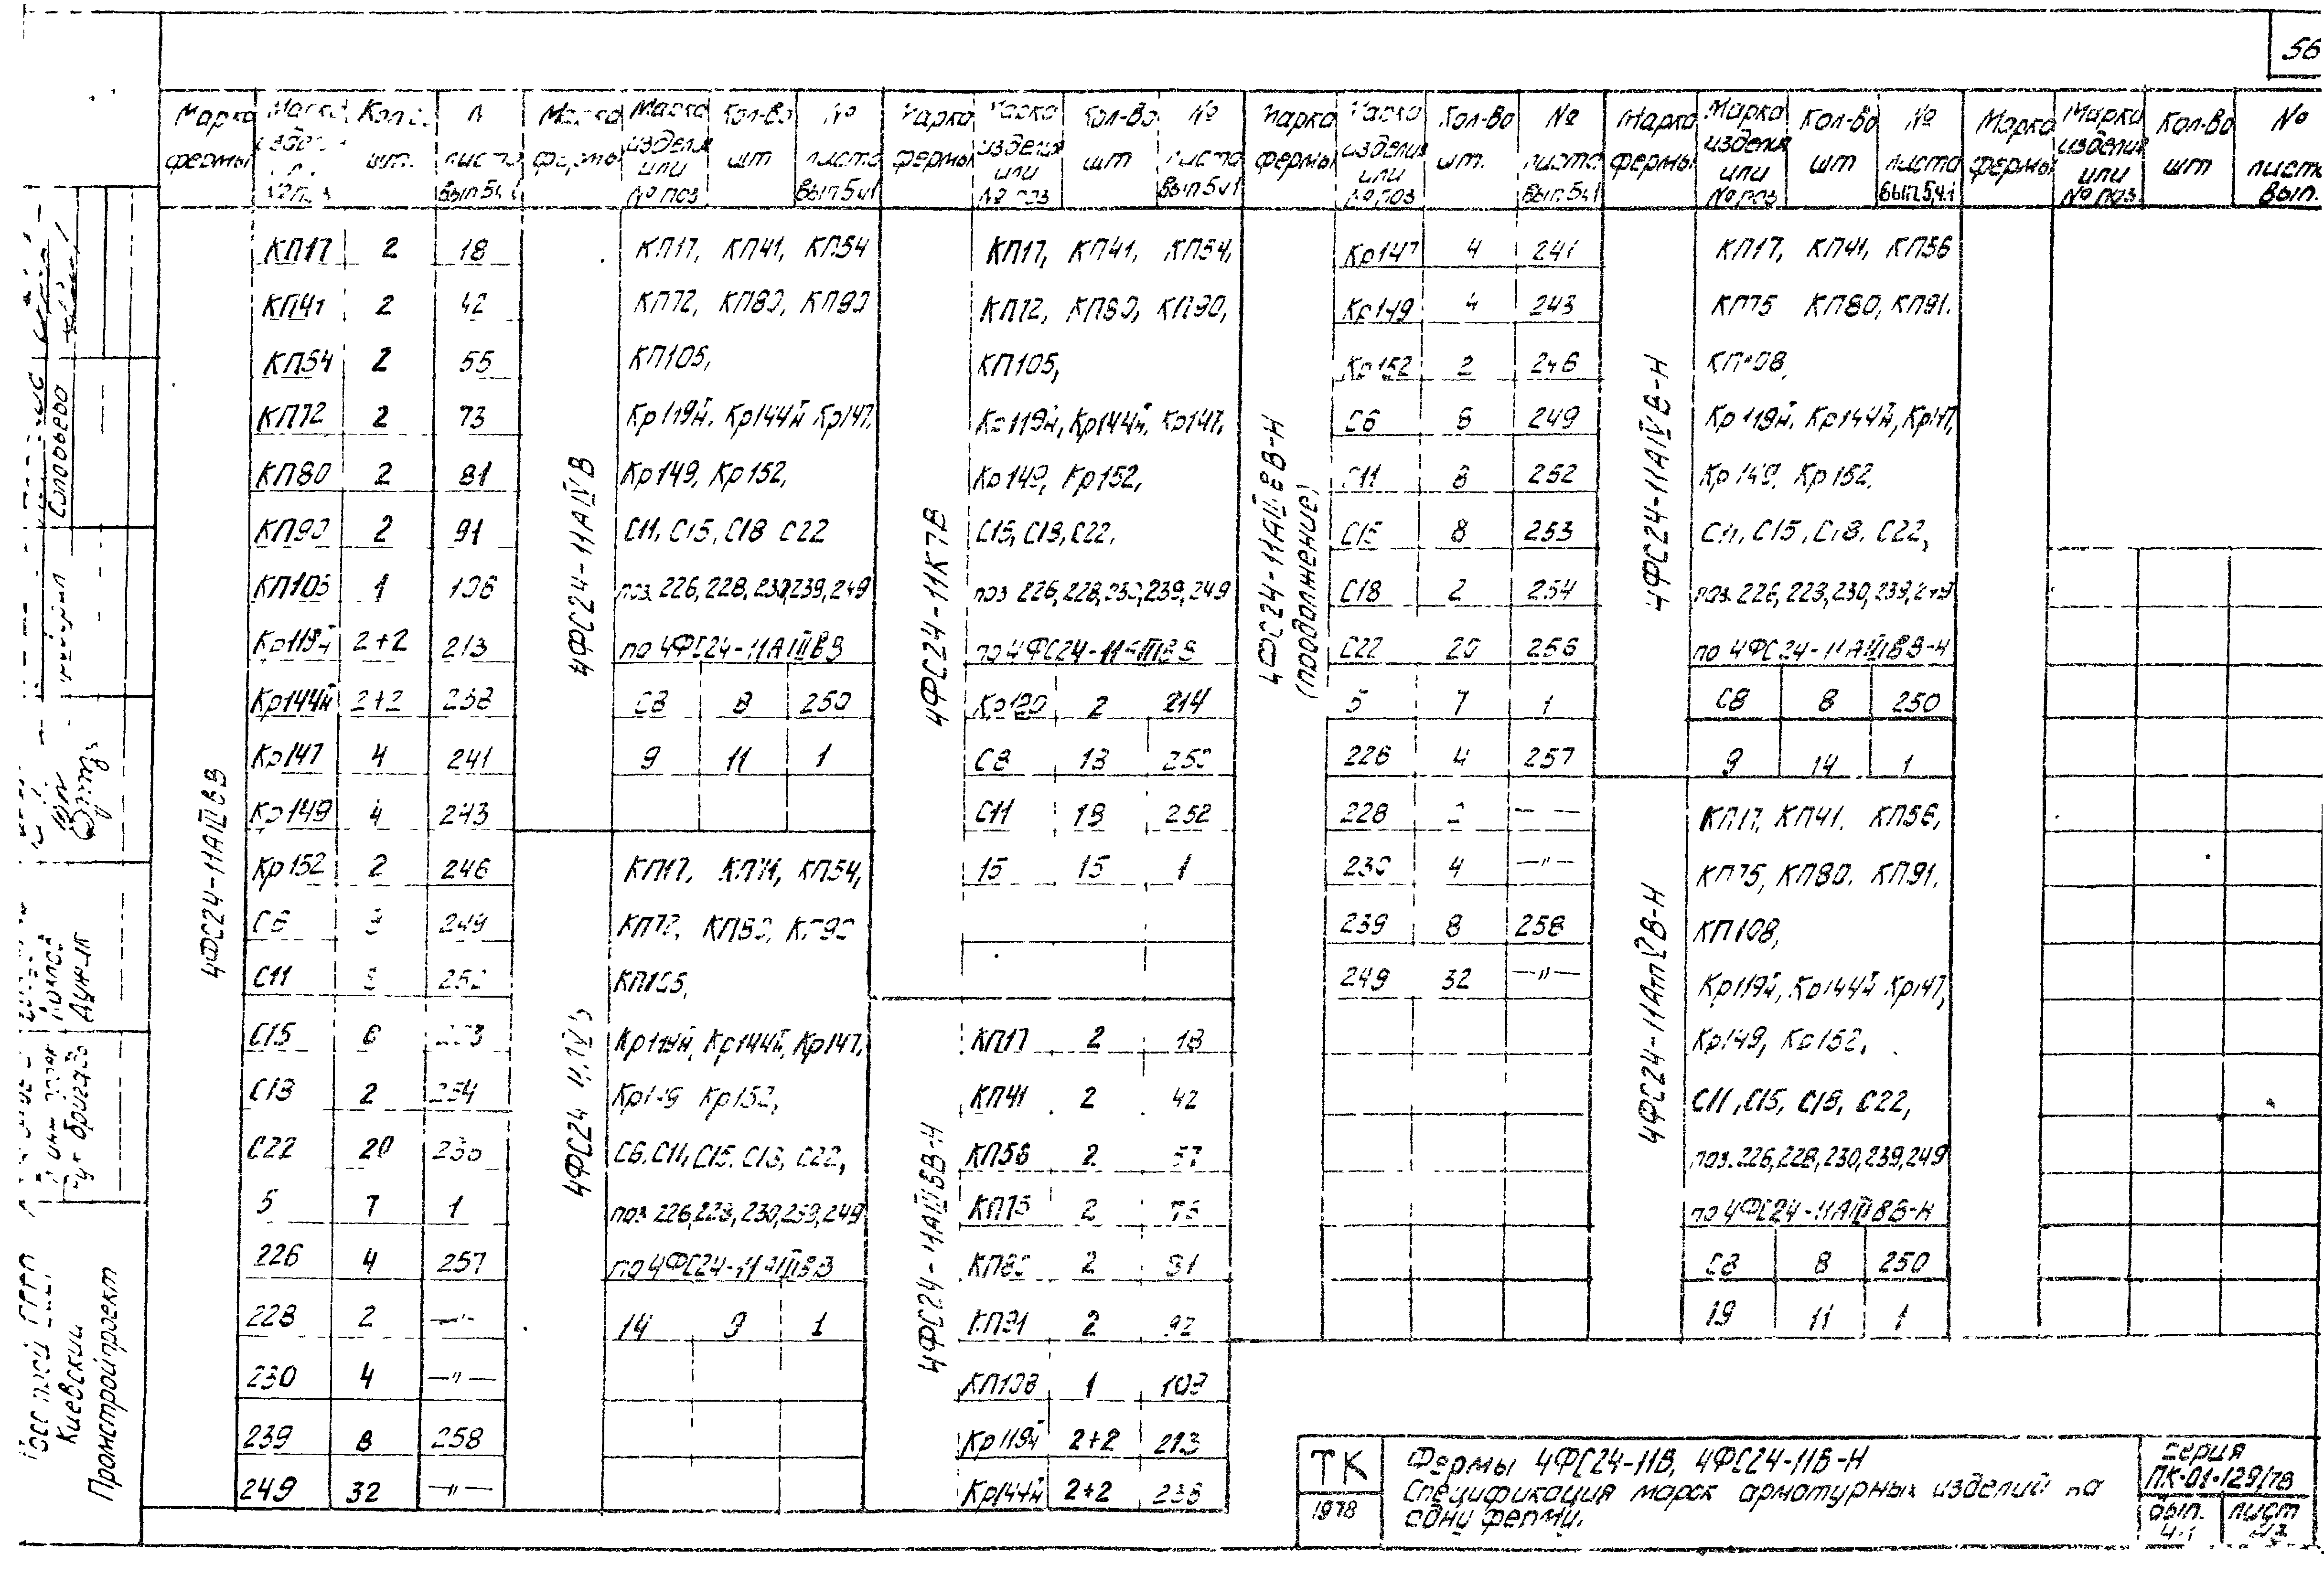 56
Марка фермы | Марка изделия или № поз. | Кол-во шт. | № листа вып 5ч1
4ФС24-11АIIIвВ
КП17 2 18
КП41 2 42
КП54 2 55
КП72 2 73
КП80 2 81
КП90 2 91
КП105 1 106
Кр119н 2+2 213
Кр144н 2+2 238
Кр147 4 241
Кр149 4 243
Кр152 2 246
С6 249
С11
С15
С18 2 254
С22 20
5 7 1
226 4 257
228 2 —"—
230 4 —"—
239 8 258
249 32 —"—
Марка фермы | Марка изделия или № поз | Кол-во шт | № листа вып 5ч1
4ФС24-11АIVВ
КП17, КП41, КП54
КП72, КП80, КП90
КП105,
Кр119н, Кр144н Кр147,
Кр149, Кр152,
С11, С15, С18 С22
поз. 226, 228, 230, 239, 249
по 4ФС24-11АIIIвВ
С8 8 250
9 11 1
4ФС24
КП17, КП41, КП54,
КП72, КП80, КП90
КП105,
Кр119н, Кр144н, Кр147,
Кр149 Кр152,
С6, С11, С15, С18, С22,
поз 226, 228, 230, 239, 249
по 4ФС24-11АIIIвВ
14 9 1
Марка фермы | Марка изделия или № поз | Кол-во шт | № листа вып 5ч1
4ФС24-11К7В
КП17, КП41, КП54,
КП72, КП80, КП90,
КП105,
Кр119н, Кр144н, Кр147,
Кр149, Кр152,
С15, С18, С22,
поз 226, 228, 230, 239, 249
по 4ФС24-11АIIIвВ
Кр120 2 214
С8 250
С11 252
15 15 1
4ФС24-11АIIIвВ-Н
КП17 2 18
КП41 2 42
КП56 2 57
КП75 2 76
КП80 2 81
КП91 2 92
КП108 1 109
Кр119н 2+2 213
Кр144н 2+2 238
Марка фермы | Марка изделия или № поз | Кол-во шт. | № листа вып. 5ч1
4ФС24-11АIIIвВ-Н
(продолжение)
Кр147 4 241
Кр149 4 243
Кр152 2 246
С6 8 249
С11 8 252
С15 8 253
С18 2 254
С22 20 256
5 7 1
226 4 257
228 — —
230 4 —"—
239 8 258
249 32 —"—
Марка фермы | Марка изделия или № поз | Кол-во шт | № листа вып. 5,ч.1
4ФС24-11АIVВ-Н
КП17, КП41, КП56
КП75 КП80, КП91.
КП108,
Кр119н, Кр144н, Кр147,
Кр149, Кр152,
С11, С15, С18, С22,
поз. 226, 228, 230, 239, 249
по 4ФС24-11АIIIвВ-Н
С8 8 250
9 14 1
4ФС24-11АтVВ-Н
КП17, КП41, КП56,
КП75, КП80, КП91.
КП108,
Кр119н, Кр144н Кр147,
Кр149, Кр152,
С11, С15, С18, С22,
поз. 226, 228, 230, 239, 249
по 4ФС24-11АIIIвВ-Н
С8 8 250
19 11 1
Марка фермы | Марка изделия или № поз. | Кол-во шт | № листа вып.
Соловьево
Дужик
бригадо
Киевский
Промстройпроект
ТК
1978
Фермы 4ФС24-11В, 4ФС24-11В-Н
Спецификация марок арматурных изделий на
одну ферму.
серия
ПК-01-129/78
вып. лист
4-1